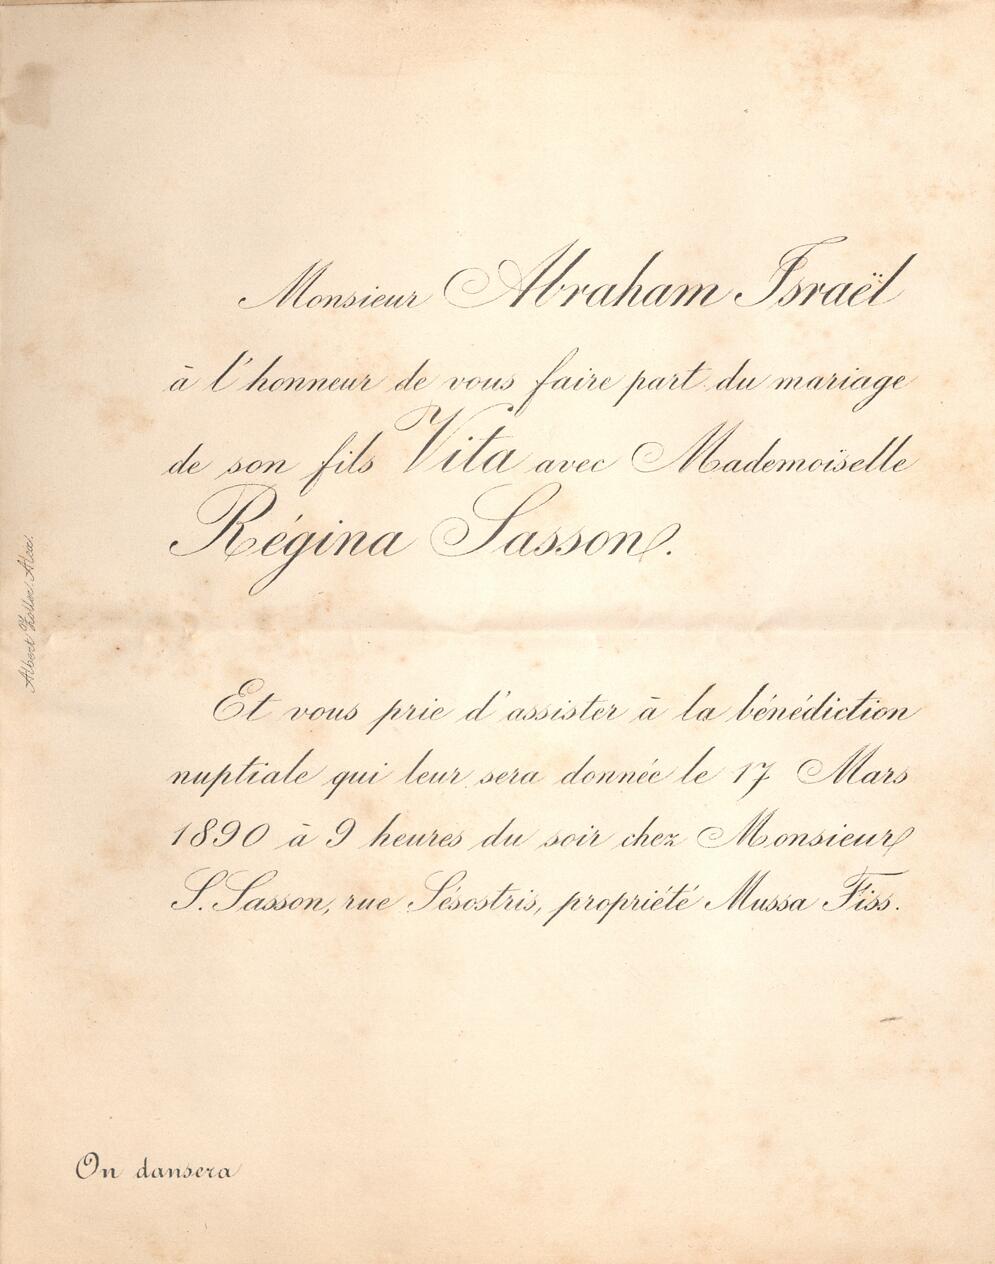 Monsieur Abraham Israël
à l'honneur de vous faire part du mariage
de son fils Vita avec Mademoiselle
Régina Sasson.
Et vous prie d'assister à la bénédiction
nuptiale qui leur sera donnée le 17 Mars
1890 à 9 heures du soir chez Monsieur
S. Sasson, rue Sésostris, propriété Mussa Fiss.
On dansera
Albert Zoller. Alex.